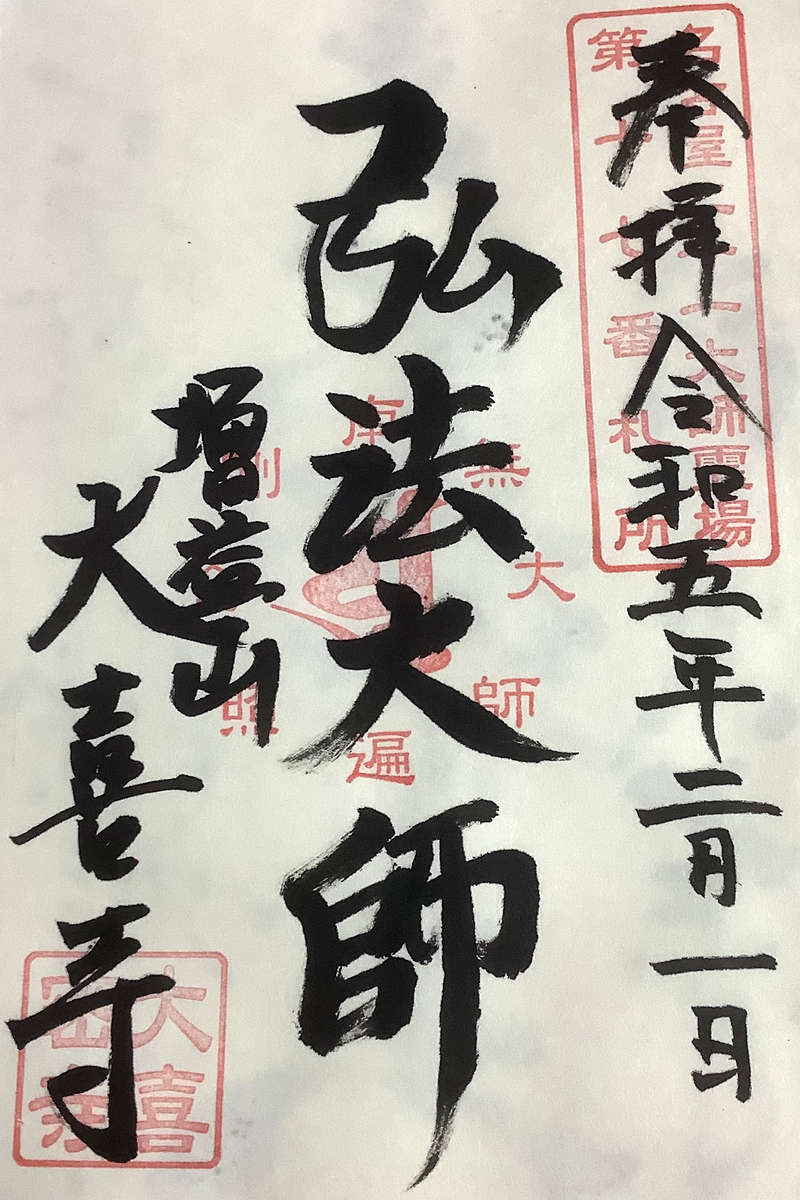 奉拝 令和五年二月一日
名古屋二十一大師霊場
第十七番札所
弘法大師
南無大師遍照金剛
増益山
大喜寺
大喜